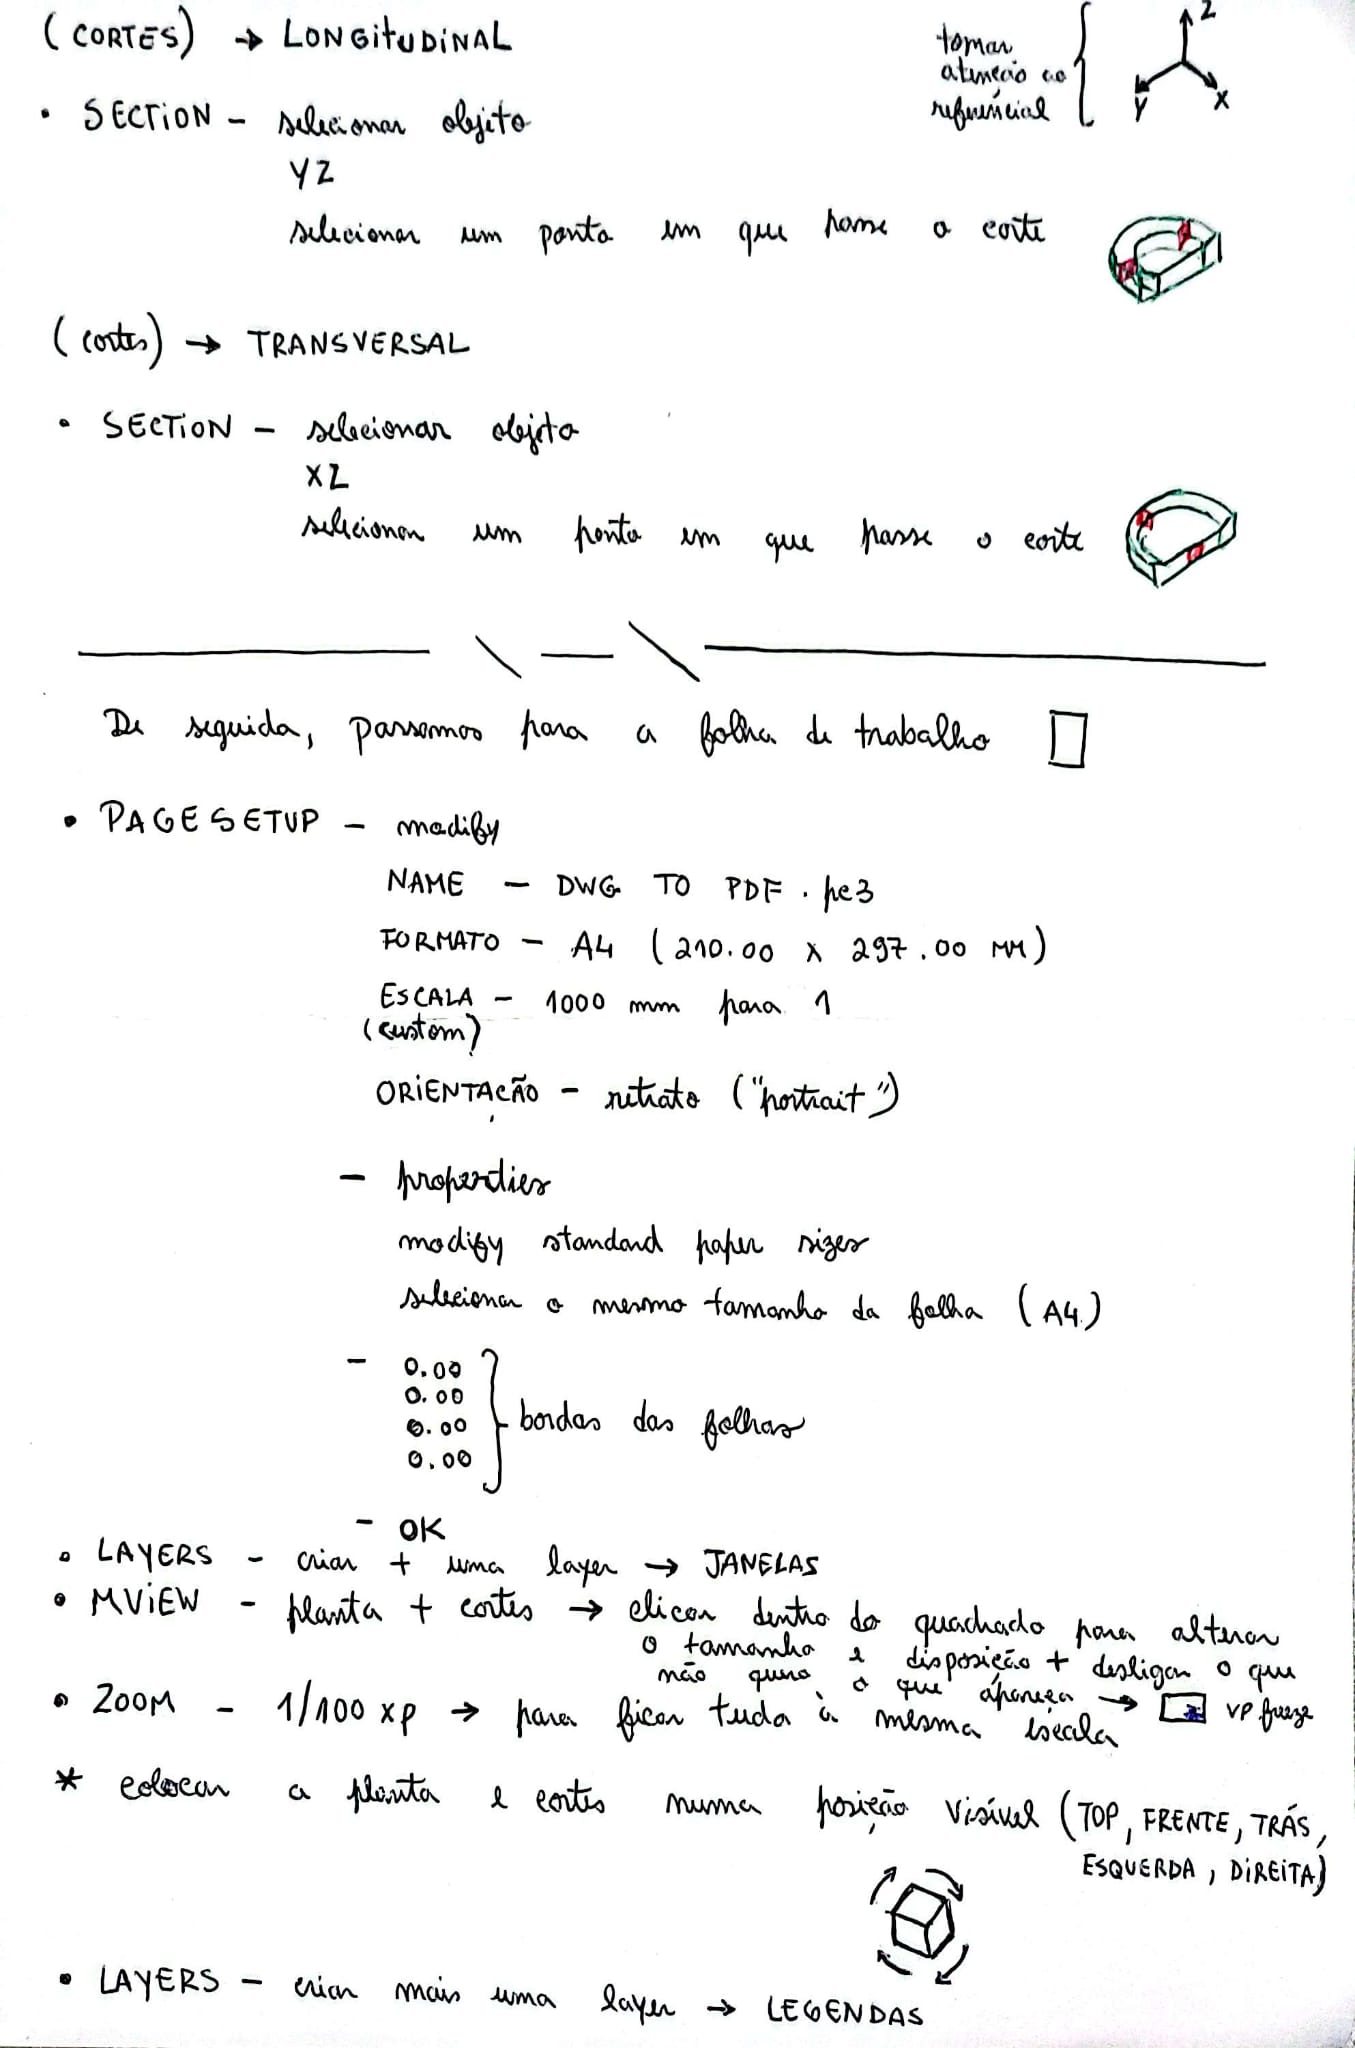 (CORTES) → LONGITUDINAL
tomar
atenção ao
referêncial
Z
Y
X
• SECTION - selecionar objeto
YZ
selecionar um ponto em que passe o corte
(cortes) → TRANSVERSAL
• SECTION - selecionar objeto
XZ
selecionar um ponto em que passe o corte
De seguida, passamos para a folha de trabalho
• PAGESETUP - modify
NAME - DWG TO PDF.pc3
FORMATO - A4 (210.00 x 297.00 MM)
ESCALA - 1000 mm para 1
(custom)
ORIENTAÇÃO - retrato ("portrait")
- properties
modify standard paper sizes
selecionar o mesmo tamanho da folha (A4)
- 0.00
0.00
0.00
0.00
bordas das folhas
- OK
• LAYERS - criar + uma layer → JANELAS
• MVIEW - planta + cortes → clicar dentro do quadrado para alterar
o tamanho e disposição + desligar o que
não quero, o que apareça → VP freeze
• ZOOM - 1/100 xp → para ficar tudo à mesma escala
* colocar a planta e cortes numa posição visível (TOP, FRENTE, TRÁS,
ESQUERDA, DIREITA)
• LAYERS - criar mais uma layer → LEGENDAS